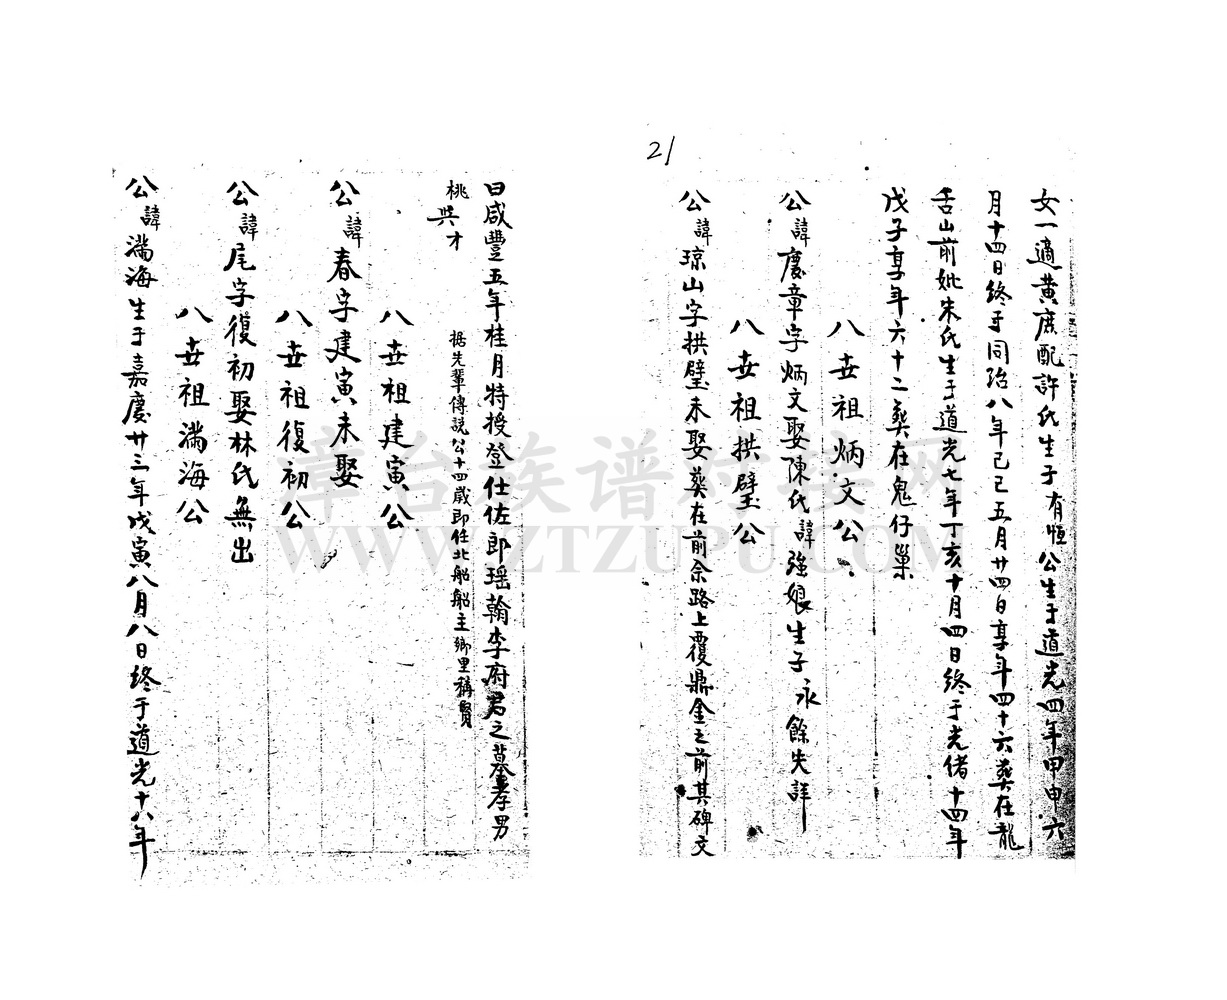 21
女一適黃庶配許氏生于有恒公生于道光四年甲申六
月十四日終于同治八年己巳五月廿四日享年四十六葬在龍
舌山前妣朱氏生于道光七年丁亥十月四日終于光绪十四年
戊子享年六十二葬在鬼仔巢
八世祖炳文公
公諱慶章字炳文娶陳氏諱強娘生子永餘失詳
八世祖拱璧公
公諱琼山字拱璧未娶葬在前余路上覆鼎金之前其碑文
曰咸豐五年桂月特授登仕佐郎瑶翰李府君之墓孝男
桃
英才
据先輩傳説公十四歲即任北船船主鄉里稱賢
八世祖建寅公
公諱春字建寅未娶
八世祖復初公
公諱尾字復初娶林氏無出
八世祖满海公
公諱满海生于嘉慶廿三年戊寅八月八日终于道光十八年
漳台族谱对接网
WWW.ZTZUPU.COM